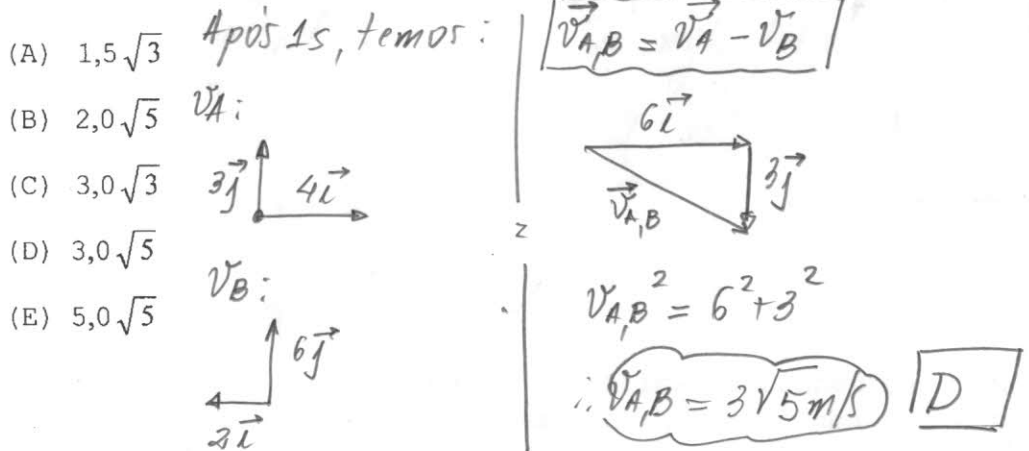 (A) 1,5√3
(B) 2,0√5
(C) 3,0√3
(D) 3,0√5
(E) 5,0√5
Após 1s, temos:
VA:
3j⃗ 4i⃗
VB:
6j⃗
2i⃗
V⃗A,B = V⃗A - VB
6i⃗
3j⃗
V⃗A,B
VA,B² = 6² + 3²
∴ VA,B = 3√5 m/s
D